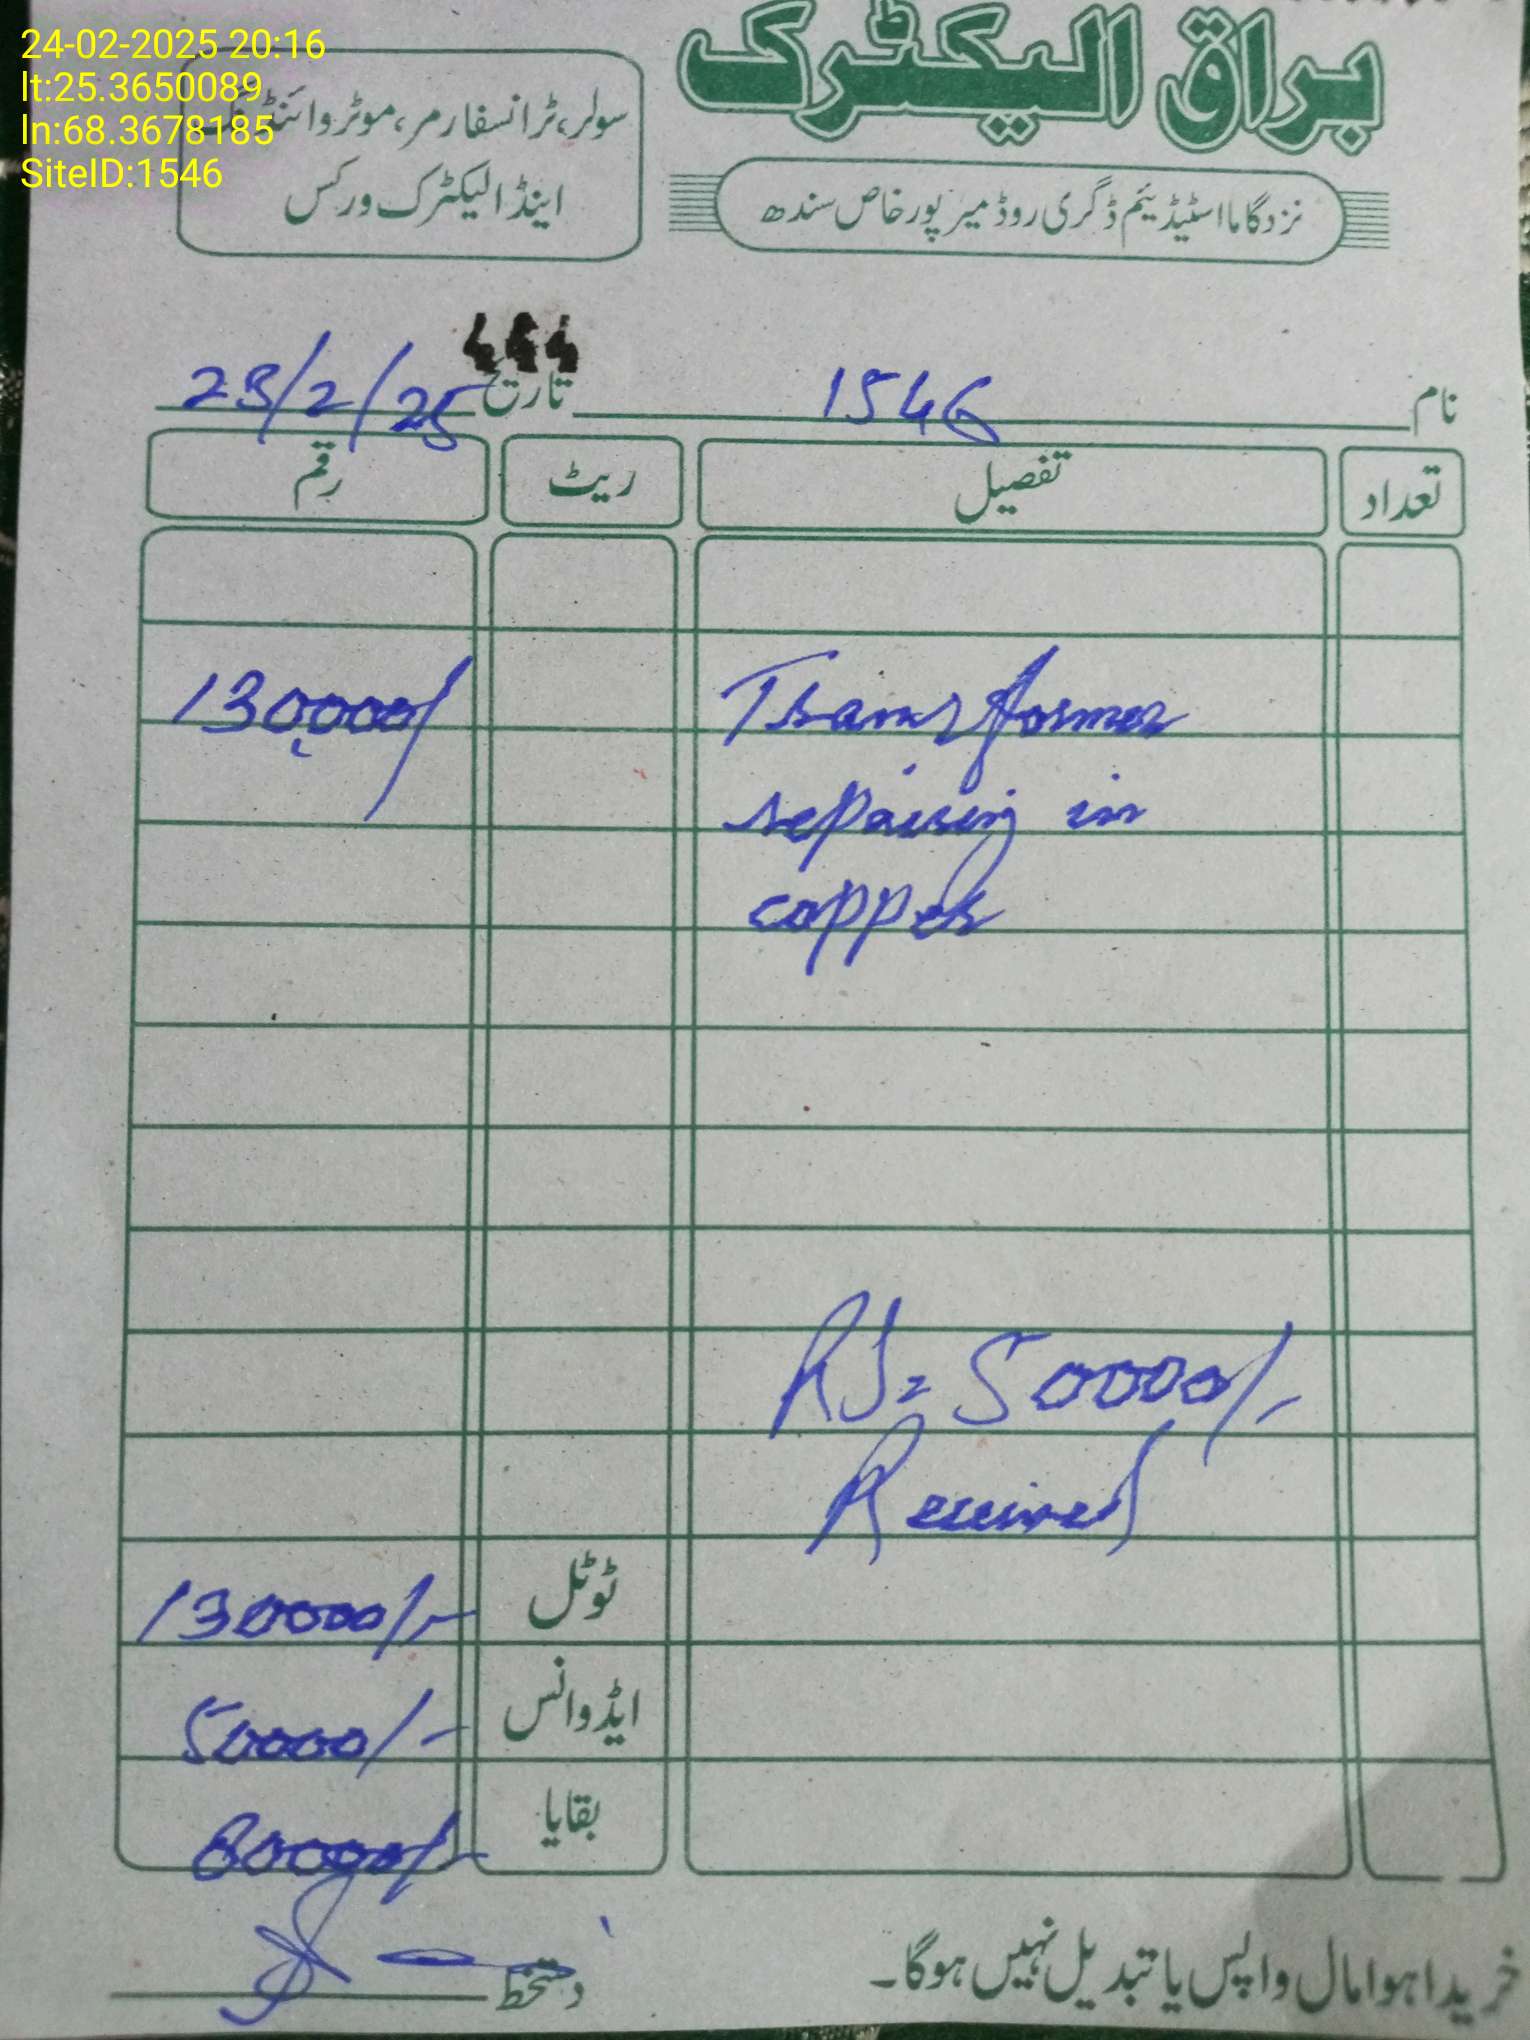 24-02-2025 20:16
lt:25.3650089
ln:68.3678185
SiteID:1546
براق الیکٹرک
سولر، ٹرانسفارمر، موٹر وائنڈنگ
اینڈ الیکٹرک ورکس
نزد گاما اسٹیڈیئم ڈگری روڈ میرپورخاص سندھ
نام 1546 تاریخ 23/2/25
تعداد تفصیل ریٹ رقم
Transformer 130,000/
repairing in
copper
RS= 50000/-
Received
ٹوٹل 130000/-
ایڈوانس 50000/-
بقایا 80000/-
دستخط
خریدا ہوا مال واپس یا تبدیل نہیں ہوگا۔